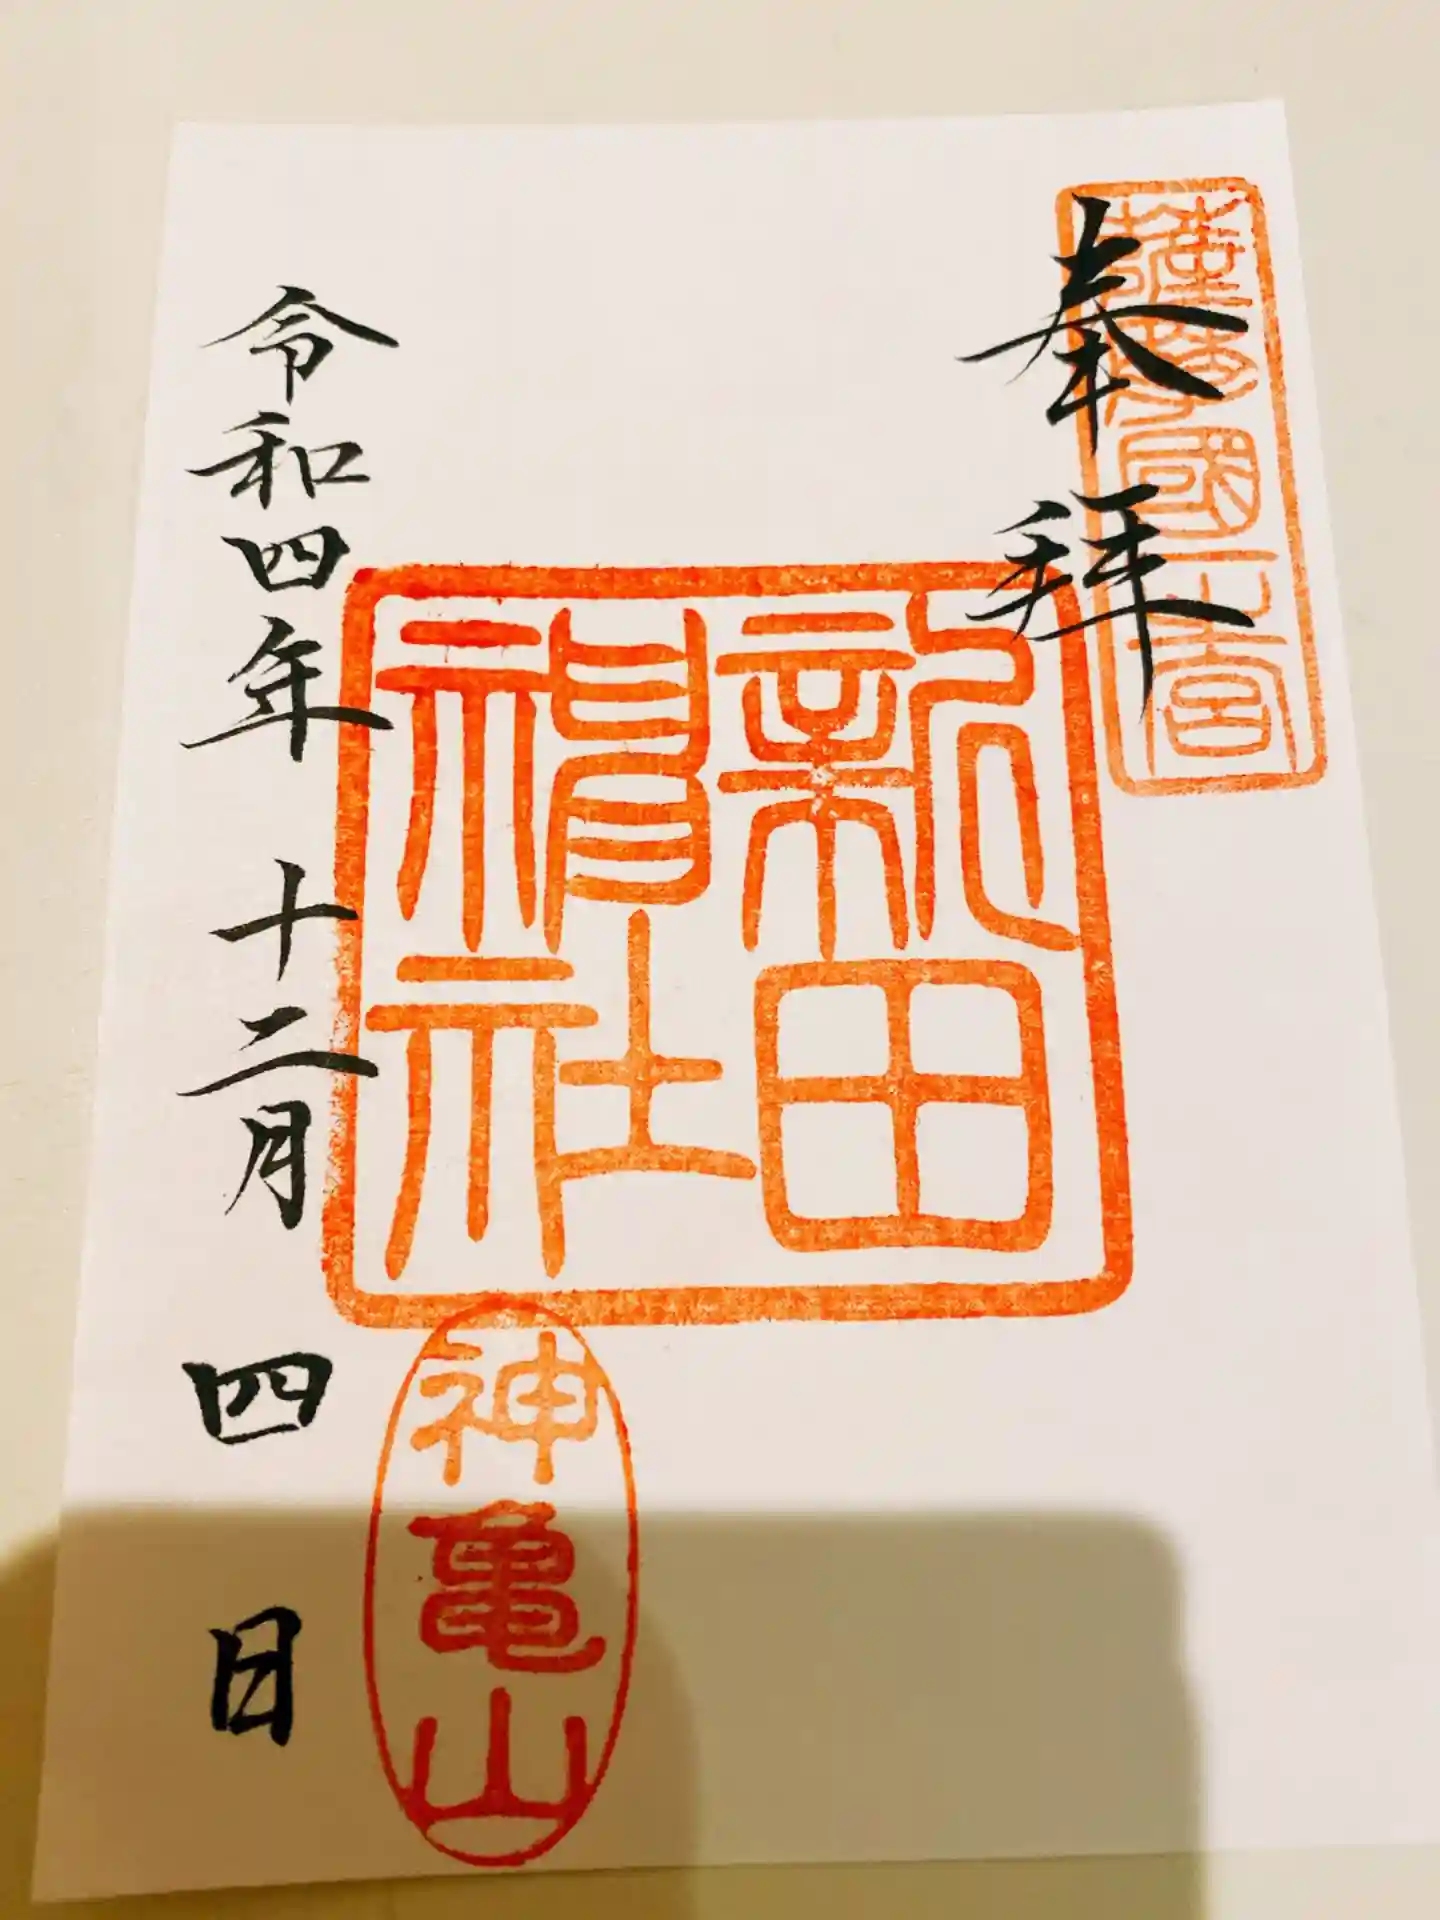 奉拝
薩摩國一宮
新田
神社
神亀山
令和四年十二月四日